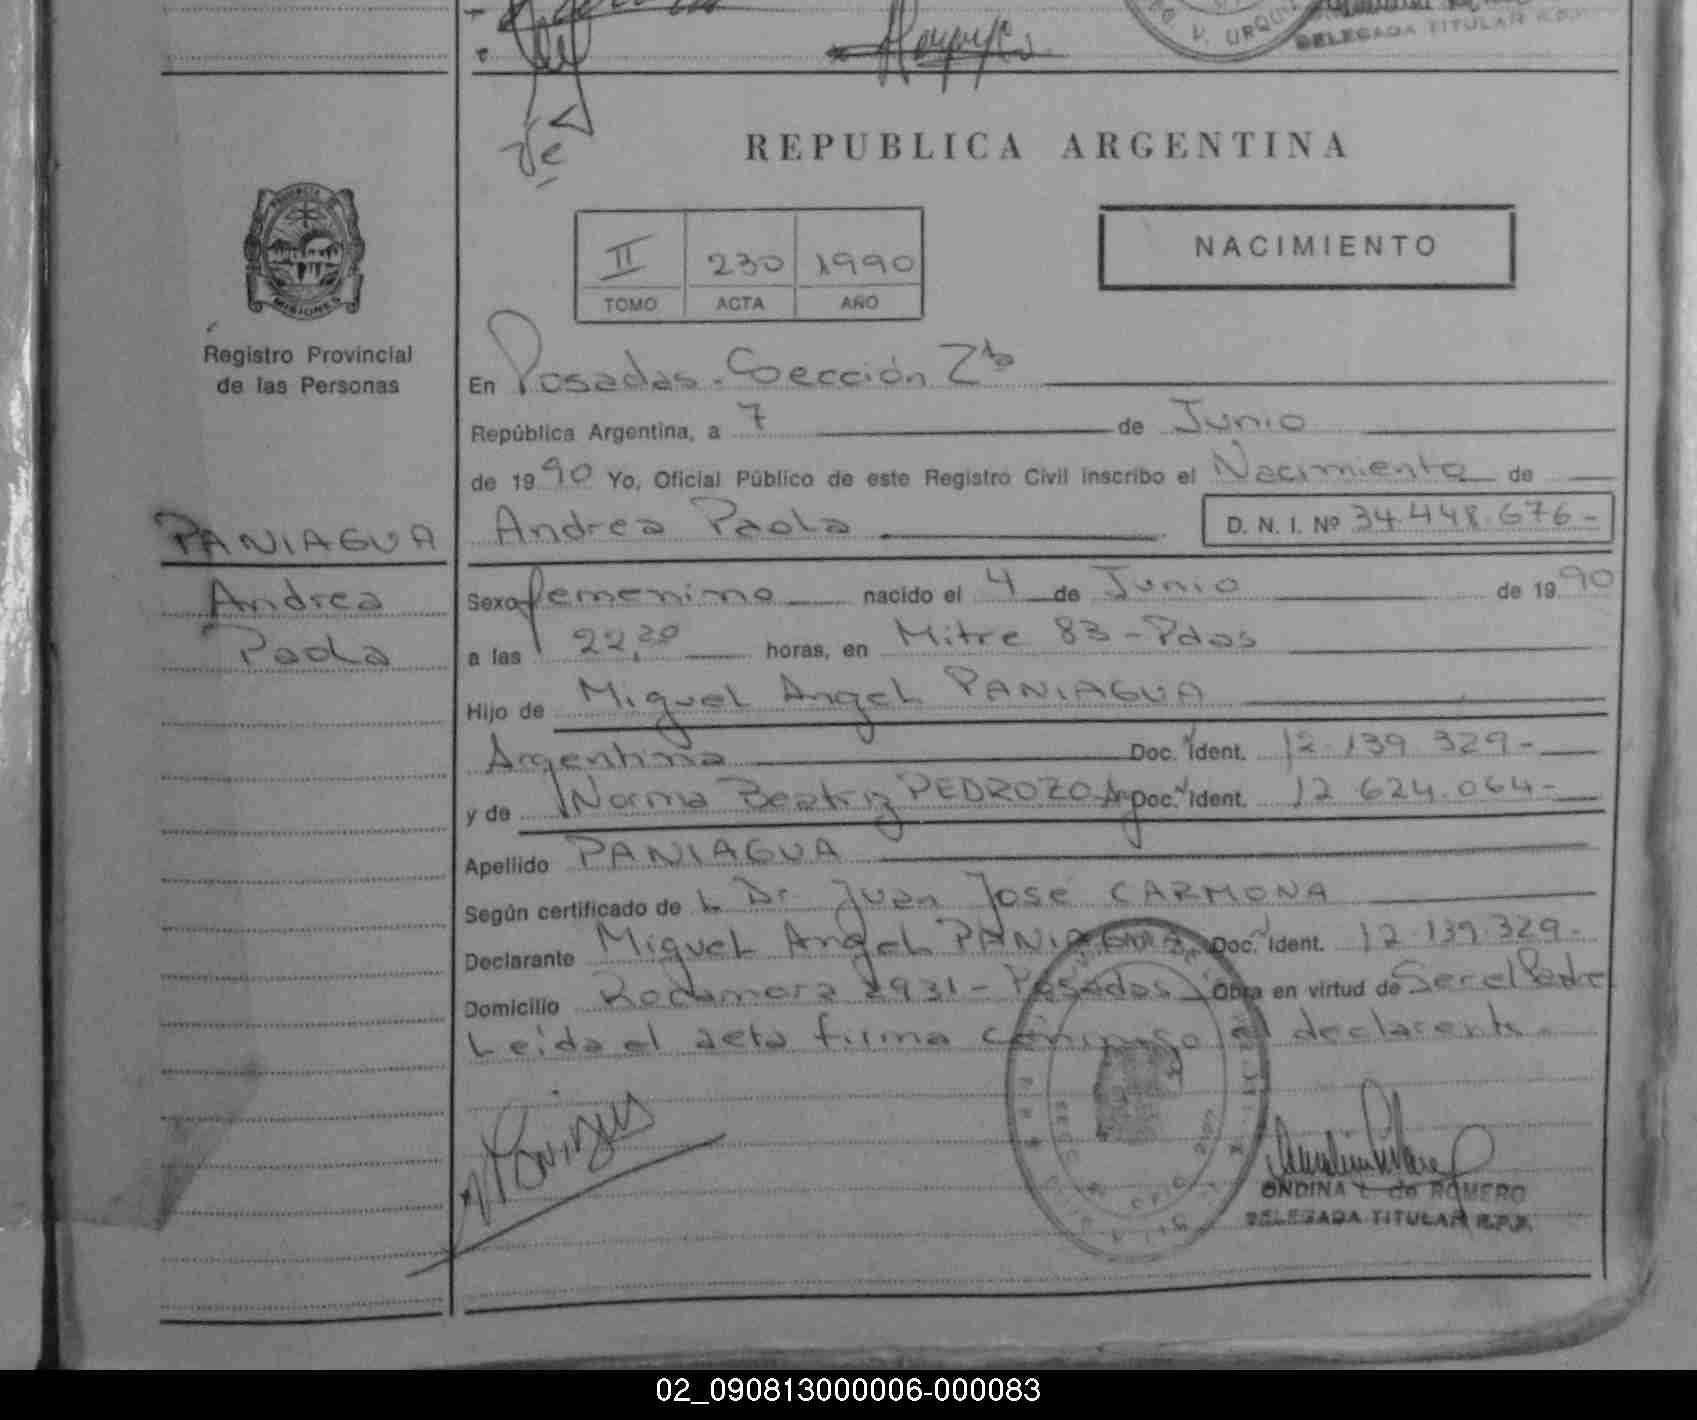 V. URQUI
DELEGADA TITULAR R.P.P.
REPUBLICA ARGENTINA
PROVINCIA
MISIONES
II 230 1990
TOMO ACTA AÑO
NACIMIENTO
Registro Provincial
de las Personas
En Posadas - Sección 2da
República Argentina, a 7 de Junio
de 1990 Yo, Oficial Público de este Registro Civil inscribo el Nacimiento de
PANIAGUA
Andrea Paola D. N. I. Nº 34.448.676-
Andrea
Paola
Sexo femenino nacido el 4 de Junio de 1990
a las 22,20 horas, en Mitre 83 - Pdas
Hijo de Miguel Angel PANIAGUA
Argentina Doc. Ident. 12.139.329-
y de Norma Beatriz PEDROZO Arg Doc. Ident. 12.624.064-
Apellido PANIAGUA
Según certificado de L Dr. Juan José CARMONA
Declarante Miguel Angel PANIAGUA Doc. Ident. 12.139.329-
Domicilio Rocamora 2931 - Posadas Obra en virtud de Ser el Padre
Leída el acta firma conmigo el declarante.
ONDINA L. de ROMERO
DELEGADA TITULAR R.P.P.
02_090813000006-000083